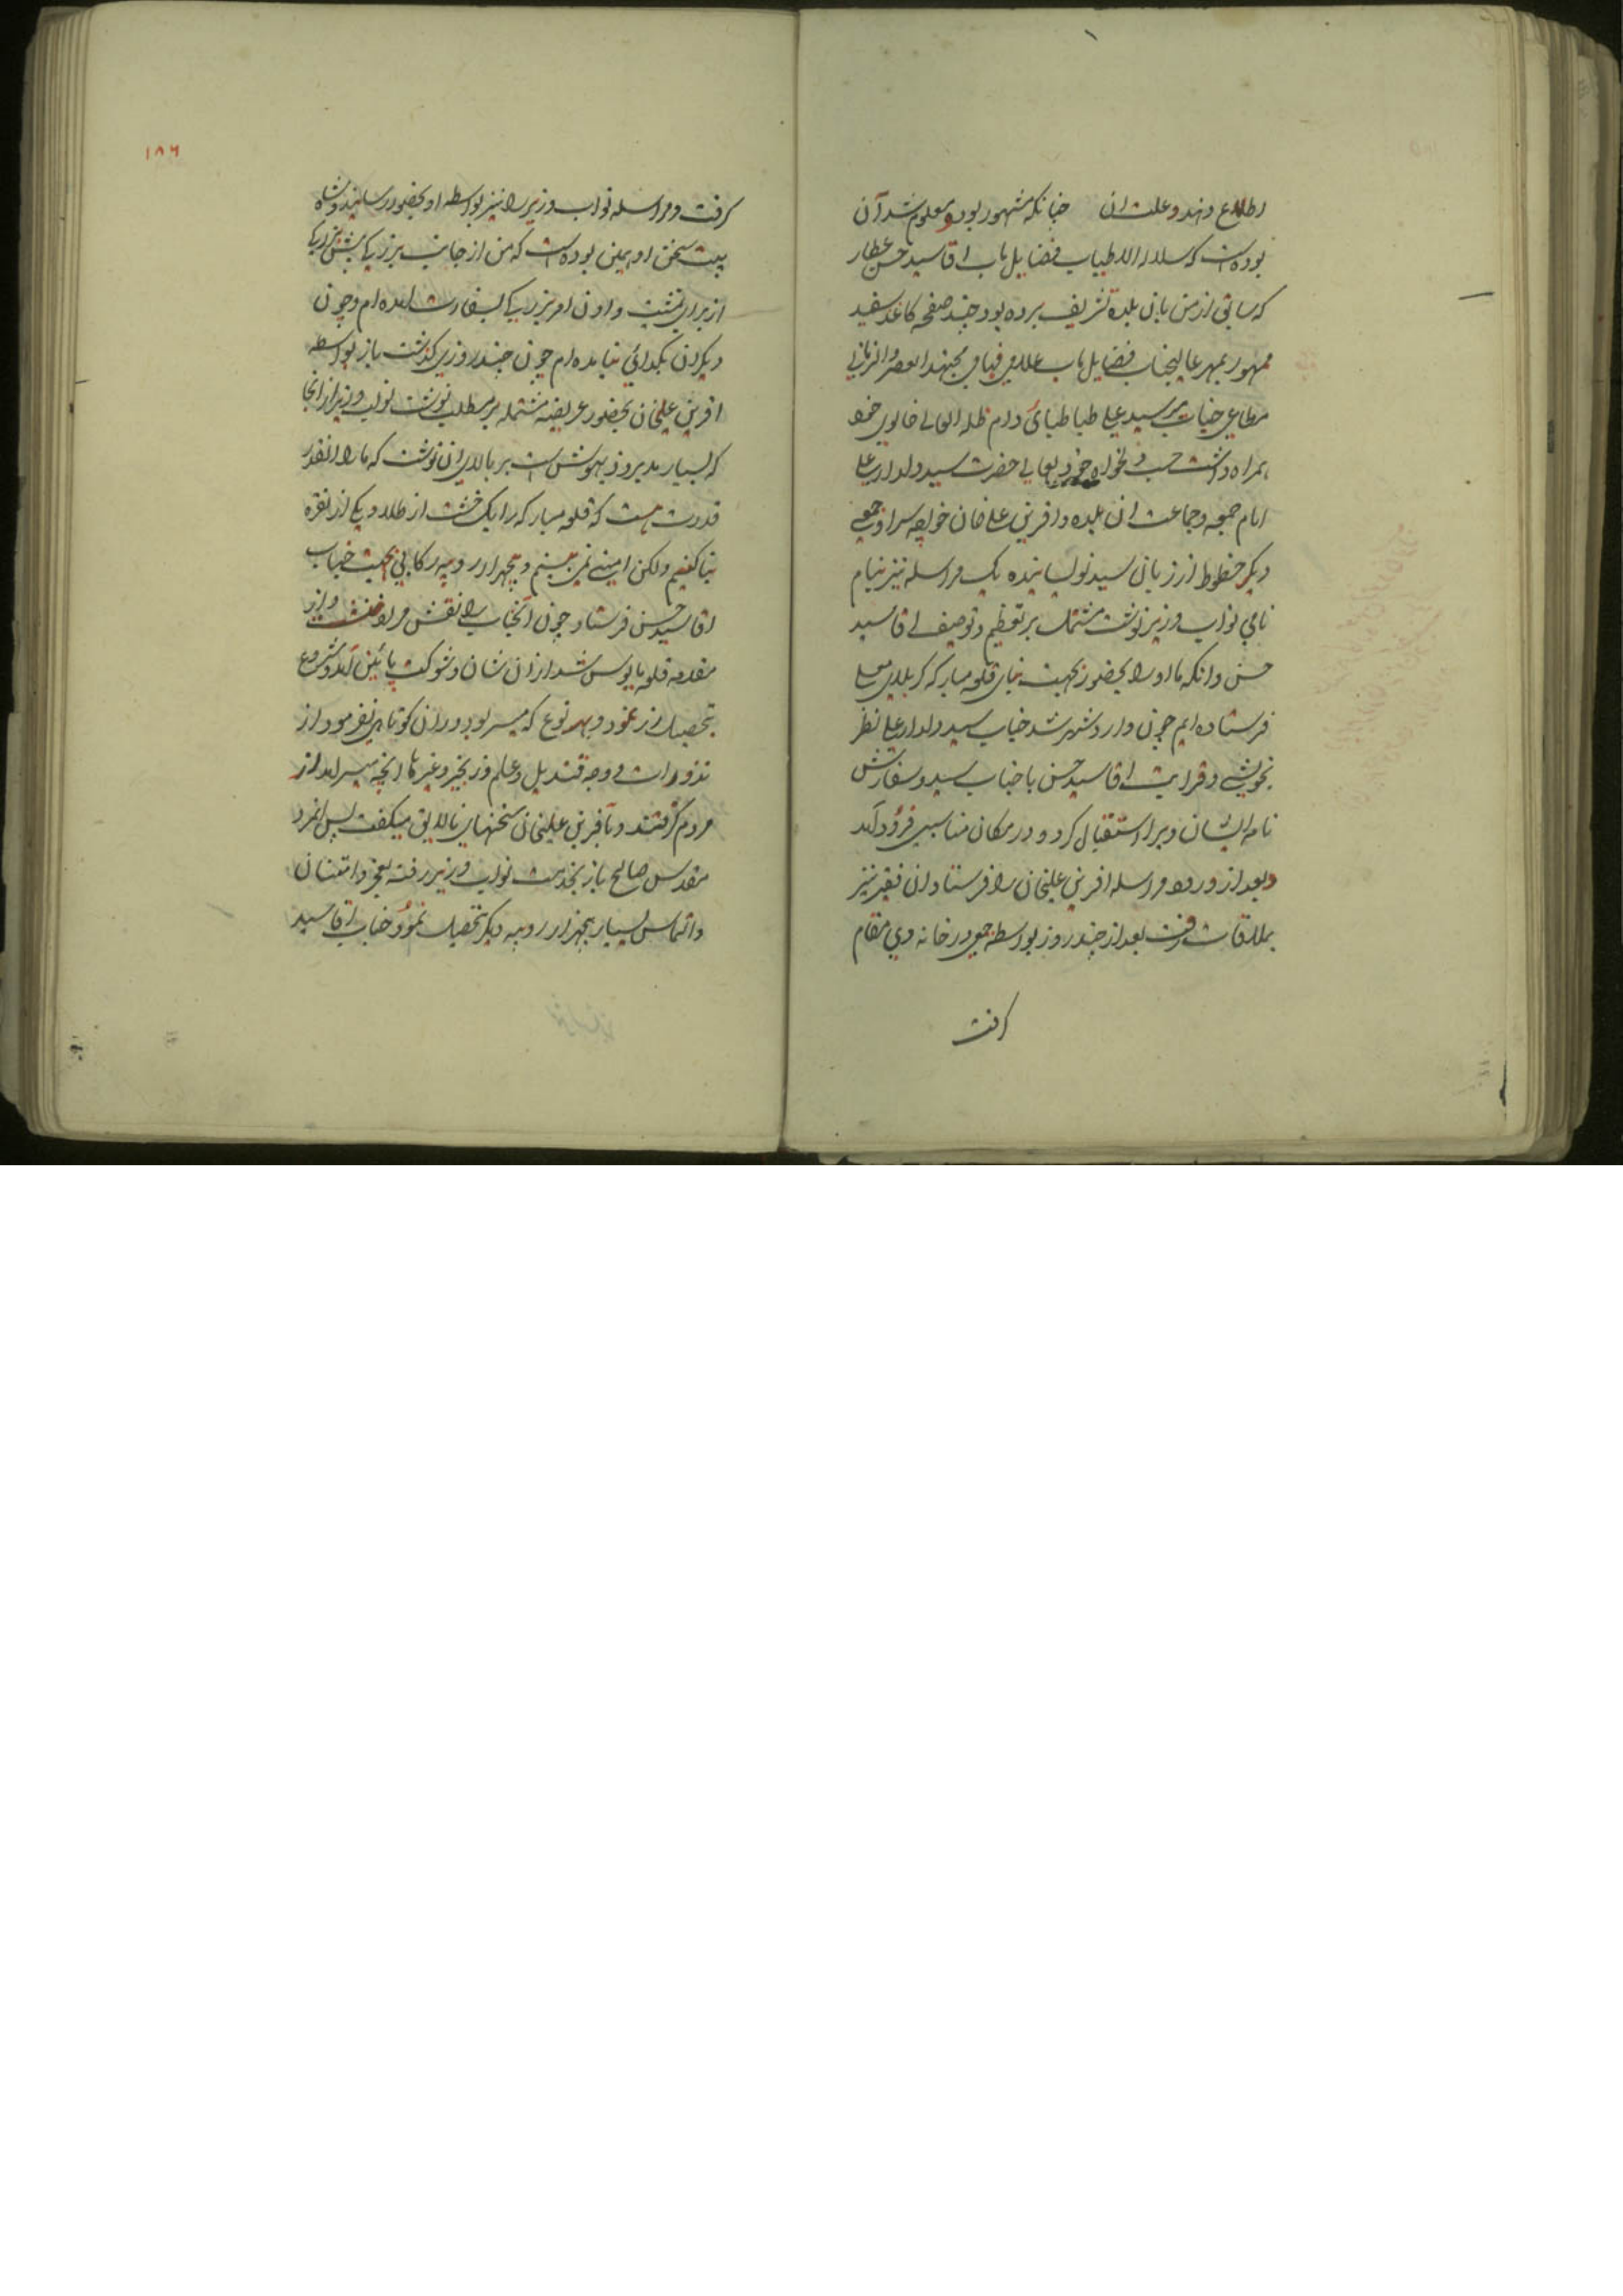 اطلاع دهد و علت ان چنانکه مشهور بود و معلوم شد آن
بوده است که سلالة الاطیاب فضایل ماب اقا سید حسن عطار
که سابق ازمن بان بلده تشریف برده بود چند صفحه کاغذ سفید
ممهور بمهر عالیجناب فضایل ماب علامی فهامی مجتهد العصر والزمانی
مطاعی جناب میر سید علی طباطبائی دام ظله العالی خالوی خود
همراه داشت حسب دلخواه خود بعالی حضرت سید دلدار علی
امام جمعه و جماعت ان بلده و افرین علی خان خواجه سرا و جمعی
دیگر خطوط از زبان سید نویسانیده یک مراسله نیز بنام
نامی نواب وزیر نوشت مشتمل بر تعظیم و توصیف اقا سید
حسن و انکه ما او را بحضور بجهت بنای قلعه مبارکه کربلای معلی
فرستاده ایم چون وارد شهر شد جناب سید دلدار علی نظر
بخویشی و قرابت اقا سید حسن با جناب سید و سفارش
نامه ایشان ویرا استقبال کرد و در مکان مناسبی فرود آمد
و بعد از ورود مراسله افرین علیخان را فرستاد ان فقیر نیز
بملاقات رفت بعد از چند روز بواسطه جمعی در خانه وی مقام
کرفت
۱۸۶
کرفت و مراسله نواب وزیر را نیز بواسطه او بحضور رسانید و شاه
بیت سخن او همین بوده است که من از جانب بزرکی پیش بزرکی
از برای تمشیت دادن امر بزرکی بسفارت امده ام و چون
دیکران بکدائی نیامده ام چون چند روزی کذشت باز بواسطه
افرین علیخان بحضور عریضه مشتمله بر مطلب نوشت نواب وزیر از انجا
که بسیار مدبر و ذیهوش است بر بالای ان نوشت که ما را انقدر
قدرت هست که قلعه مبارکه را یک خشت از طلا و یکی از نقره
بنا کنیم ولکن امینی نمی بینم و پنجهزار روپیه رکابی بجهت جناب
اقا سید حسن فرستاد چون آنجناب را نقش مراد ننشست و از
مقدمه قلعه مایوس شد از ان شان و شوکت پائین آمد و شروع
بتحصیل زر نمود و بهر نوع که میسر بود در ان کوتاهی نفرمود از
نذورات و وجه قندیل و علم و زنجیر و غیرها انچه میسر امد از
مردم کرفتند و بآفرین علیخان سخنهای نالایق میکفت پس انمرد
مقدس صالح باز بخدمت نواب وزیر رفته بعجز و امتنان
والتماس بسیار پنجهزار روپیه دیکر تحصیل نمود و جناب اقا سید